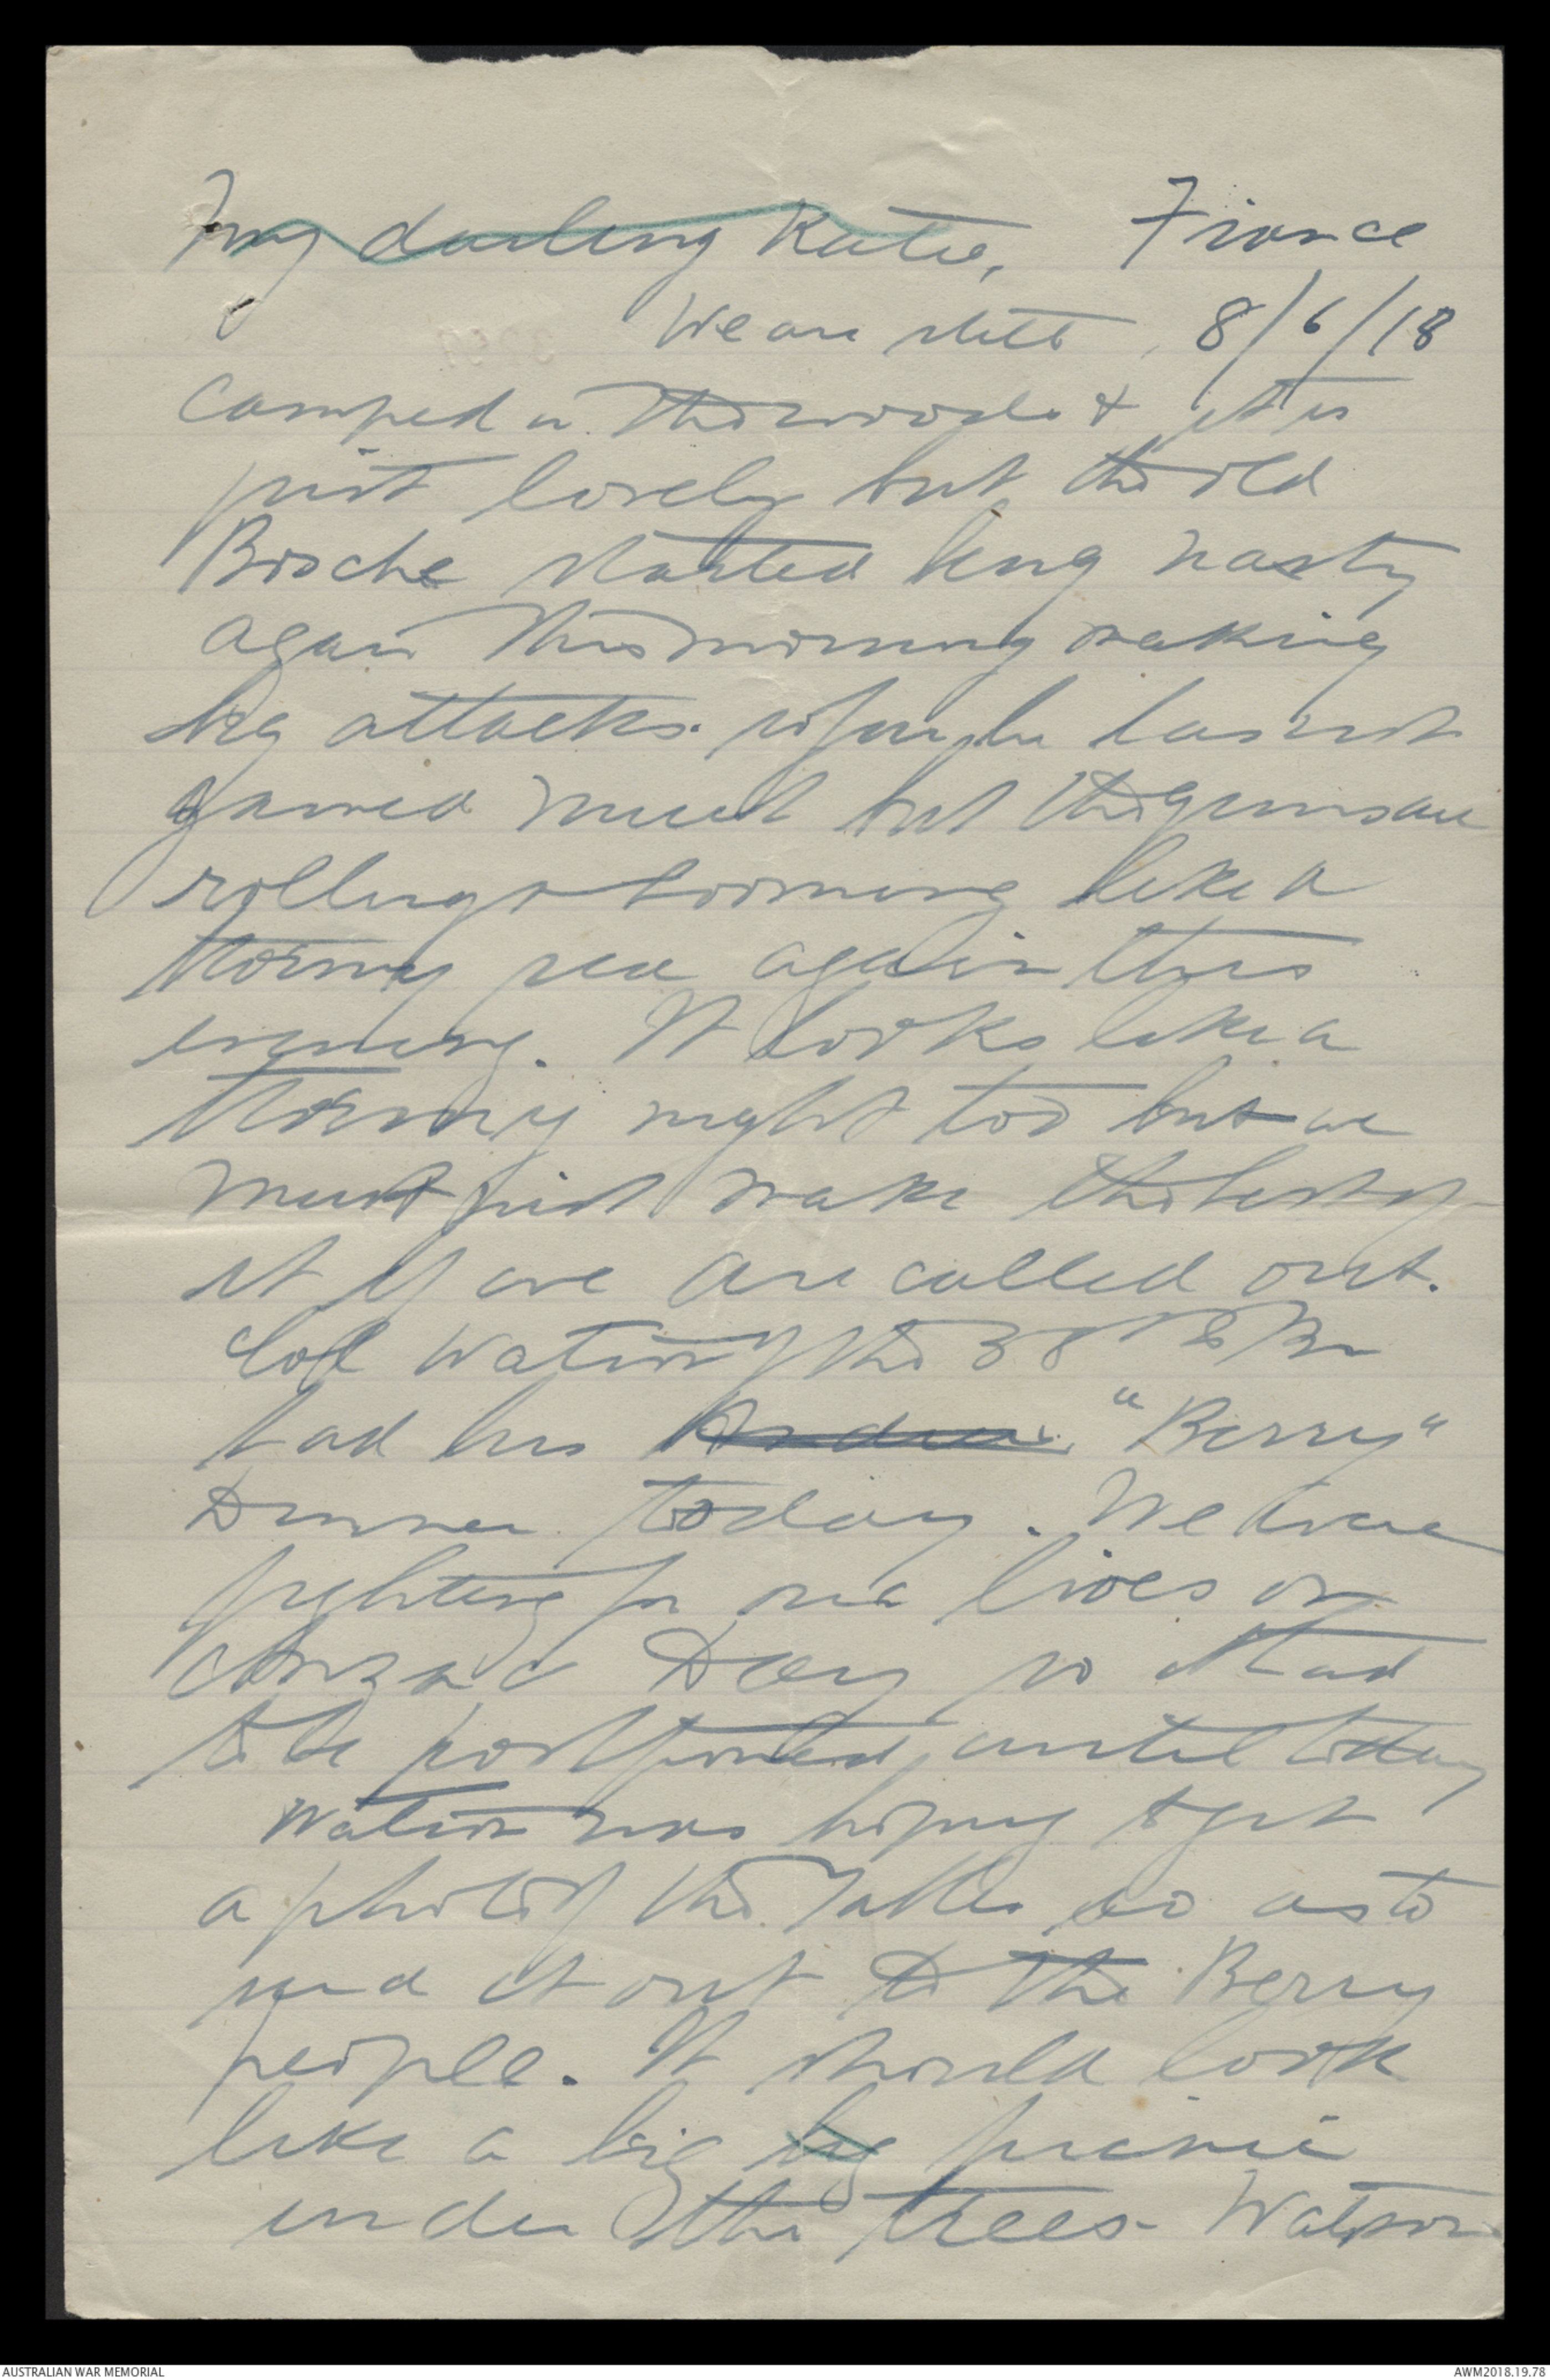 My darling Katie, France
We are still, 8/6/18
camped in the woods & it is
just lovely but the old
Bosche started being nasty
again this morning making
big attacks. so far he has not
gained much but the guns are
rolling & booming like a
stormy sea again this
evening. It looks like a
stormy night too but we
must just make the best of
it if we are called out.
Col Watson of the 38th Bn
had his "Berry"
Dinner today. We were
fighting for our lives on
Anzac Day so it had
to be postponed until today
Watson was hoping to get
a photo of the tables so as to
send it out to the Berry
people. It should look
like a big big picnic
under the trees. Watson
AUSTRALIAN WAR MEMORIAL
AWM2018.19.78